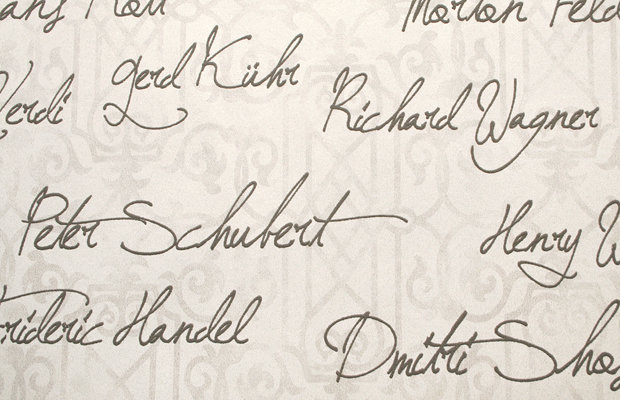 Morton Feld
Verdi
Gerd Kühr
Richard Wagner
Peter Schubert
Henry W
Frideric Handel
Dmitri Shos